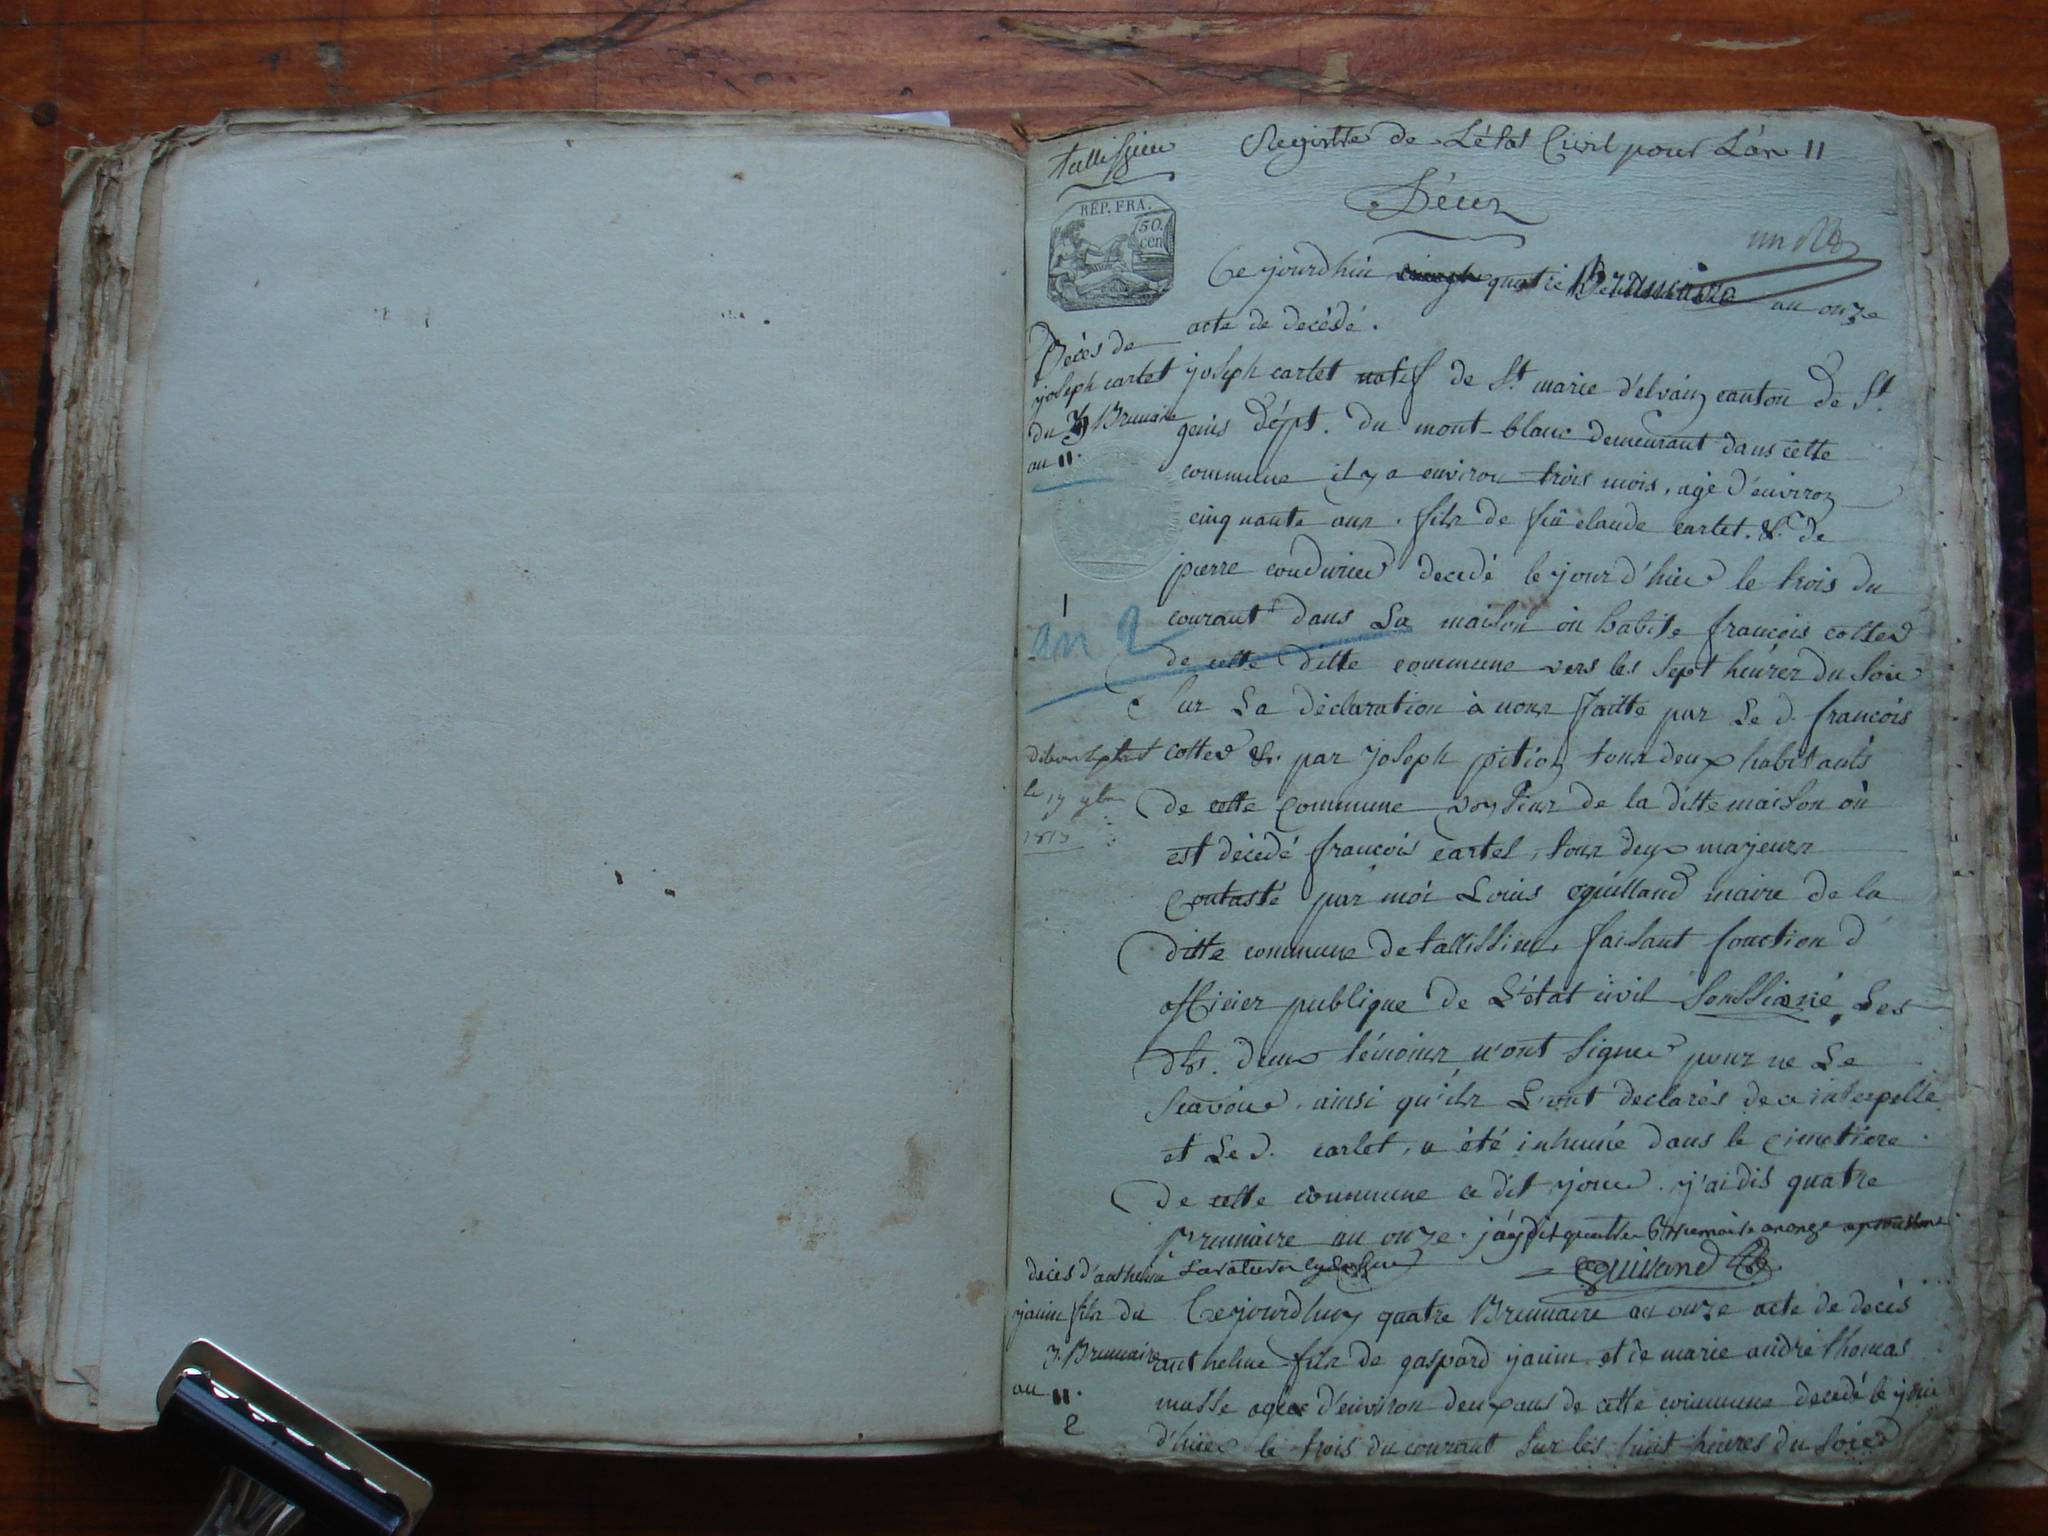 tallissieu
Registre de L'état Civil pour L'an 11
Décès
RÉP. FRA.
50.
cen
Ce jourdhui quatre Brumaire an onze
acte de decédé.
Décès de
joseph cartet
du 3 Brumaire
an 11.
joseph cartet natif de St. marie d'elvain canton de St.
genis dépt. du mont-blanc demeurant dans cette
commune il y a environ trois mois, agé d'environ
cinquante ans. fils de feü claude cartet. &. de
pierre coudurier decedé le jour d'hier le trois du
courant dans La maison où habite francois cotter
1
an 2
de cette ditte commune vers les sept heures du soir
Sur La déclaration à nous faitte par Le d. francois
cotter &. par joseph pition tous deux habitants
le 17
1813
de cette commune voysins de la ditte maison où
est décédé francois cartet, tous deux majeurs
Contasté par moi Louis eguilland maire de la
ditte commune de tallissieu, faisant fonction d
officier publique de L'état civil Soussigné, Les
dts. deux témoins n'ont signer pour ne Le
scavoir. ainsi qu'ils L'ont declarés de ce interpellé
et Le d. cartet, a été inhumé dans le cimetiere
de cette commune ce dit jour. j'ai dis quatre
Brumaire an onze. j'ay dit quattre an onze
Eguilland
décès d'anthelme
janin fils du
3. Brumaire
an 11.
2
Ce jourdhuy quatre Brumaire an onze acte de decès
anthelme fils de gaspard janin et de marie andré thomas
masse agée d'environ deux ans de cette commune decedé le jour
d'hier le trois du courant sur les huit heures du soir